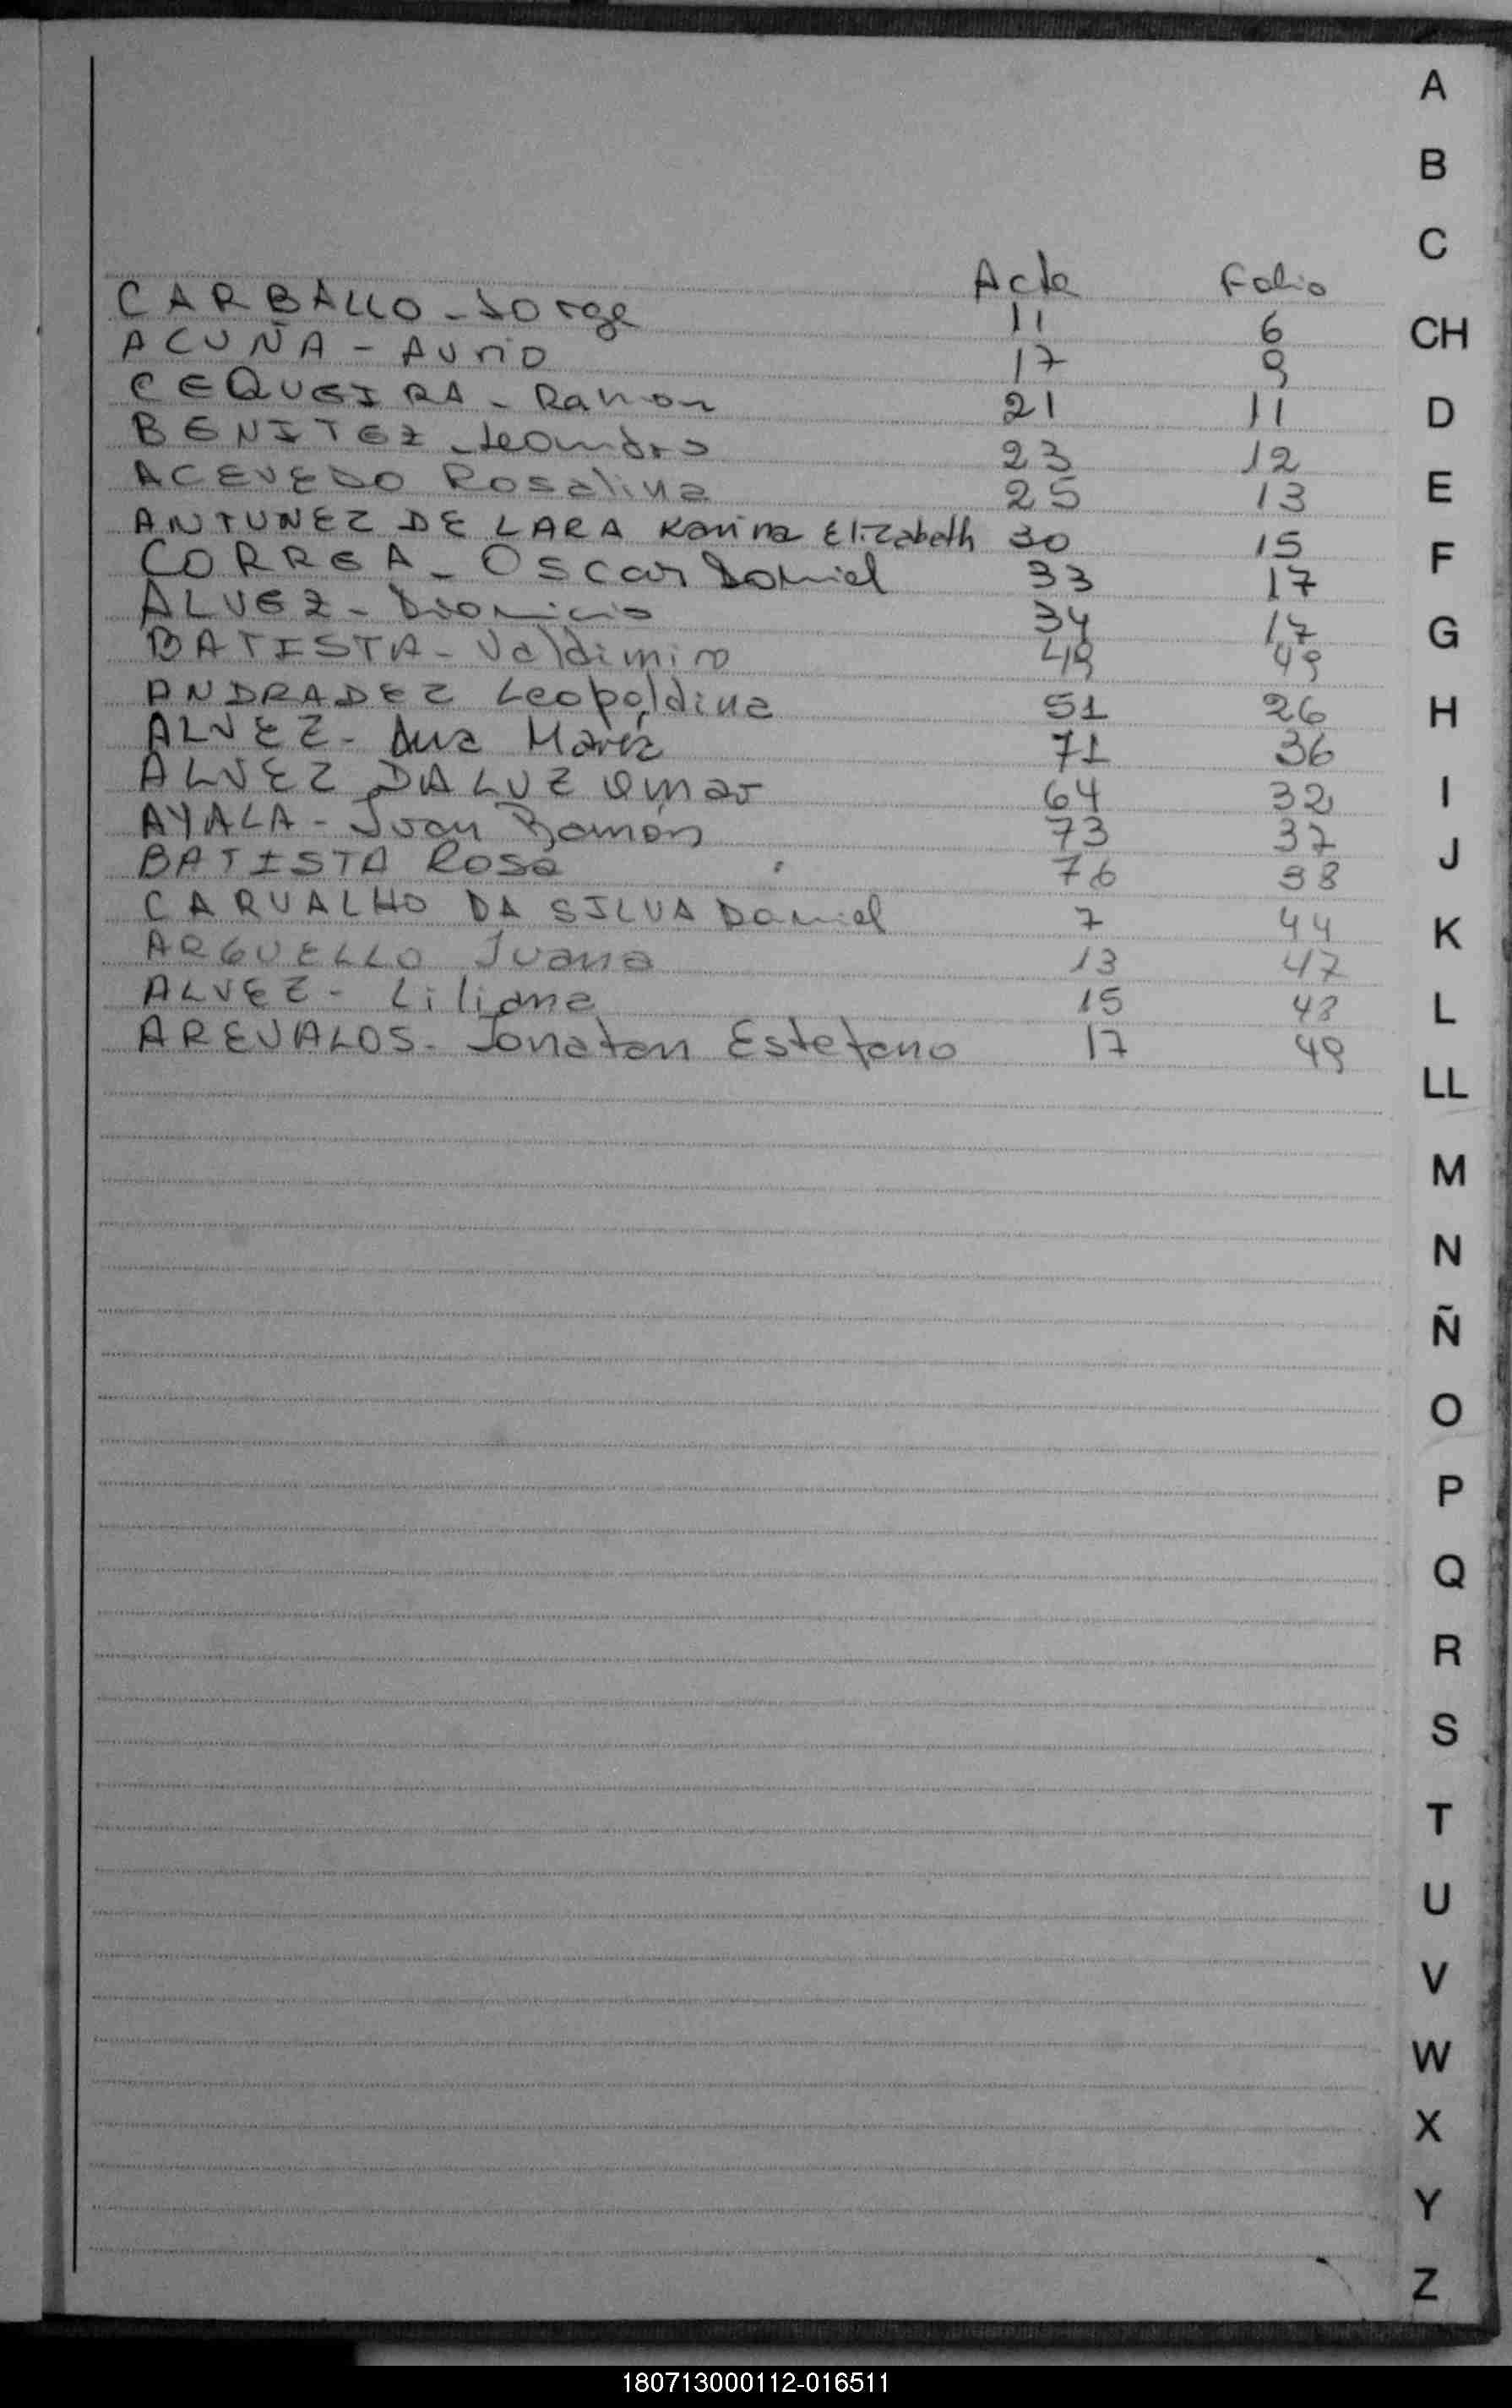 Acta Folio
CARBALLO - Jorge 11 6
ACUÑA - Aurio 17 9
CEQUEIRA - Ramon 21 11
BENITEZ - Leandro 23 12
ACEVEDO Rosalina 25 13
ANTUNEZ DE LARA Karina Elizabeth 30 15
CORREA - Oscar Daniel 33 17
ALVEZ - Dionicio 34 17
BATISTA - Valdimiro 49 49
ANDRADEZ Leopoldina 51 26
ALVEZ - Ana María 71 36
ALVEZ DA LUZ Omar 64 32
AYALA - Juan Ramón 73 37
BATISTA Rosa 76 38
CARVALHO DA SILVA Daniel 7 44
ARGUELLO Juana 13 47
ALVEZ - Liliana 15 48
AREVALOS - Jonatan Estefano 17 49
A
B
C
CH
D
E
F
G
H
I
J
K
L
LL
M
N
Ñ
O
P
Q
R
S
T
U
V
W
X
Y
Z
180713000112-016511